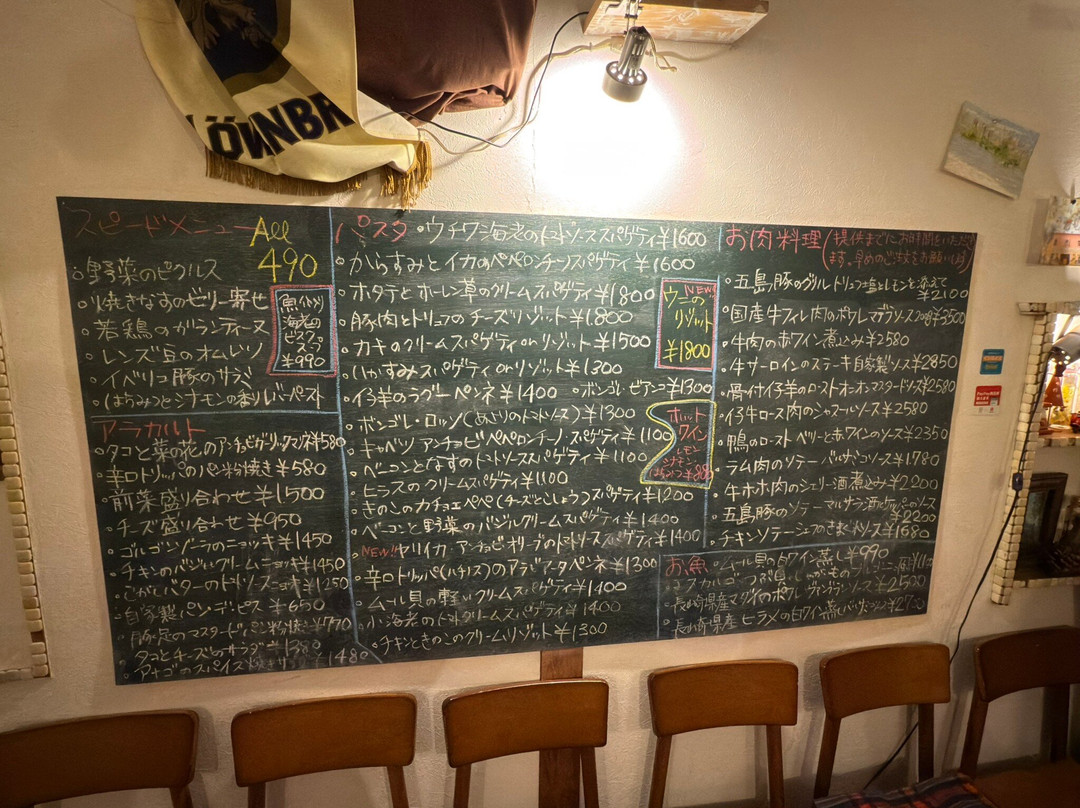 LÖWNBR
スピードメニュー All 490
・野菜のピクルス
・焼きなすのゼリー寄せ
・若鶏のガランティーヌ
・レンズ豆のオムレツ
・イベリコ豚のサラミ
・はちみつとシナモンの香り レバーペースト
魚介の
海老の
ビスク
スープ
¥990
アラカルト
・タコと菜の花のアンチョビガーリックマリネ ¥580
・辛口トリッパのパン粉焼き ¥580
・前菜盛り合わせ ¥1500
・チーズ盛り合わせ ¥950
・ゴルゴンゾーラのニョッキ ¥1450
・チキンのバジルクリームニョッキ ¥1450
・こがしバターのトマトソースニョッキ ¥1250
・自家製パンデピス ¥650
・豚足のマスタードパン粉焼 ¥770
・タコとチーズのサラダ ¥1380
・アナゴのスパイス焼き 1480
パスタ ・ウチワ海老のトマトソーススパゲティ ¥1600
・からすみとイカのペペロンチーノスパゲティ ¥1600
・ホタテとホーレン草のクリームスパゲティ ¥1800
・豚肉とトリュフのチーズリゾット ¥1800
・カキのクリームスパゲティ or リゾット ¥1500
・いかすみスパゲティ or リゾット ¥1300
・イノ羊のラグーペンネ ¥1400 ・ボンゴレ・ビアンコ ¥1300
・ボンゴレ・ロッソ(あさりのトマトソース) ¥1300
・キャベツ アンチョビ ペペロンチーノ スパゲティ ¥1100
・ベーコンとなすのトマトソーススパゲティ ¥1100
・シラスのクリームスパゲティ ¥1100
・きのこのカチョエペペ(チーズとこしょう)スパゲティ ¥1200
・ベーコンと野菜のバジルクリームスパゲティ ¥1400
NEW!! ヤリイカ アンチョビ オリーブのトマトソーススパゲティ ¥1400
・辛口トリッパ(ハチノス)のアラビアータペンネ ¥1300
・ムール貝の軽いクリームスパゲティ ¥1400
・小海老のトマトクリームスパゲティ ¥1400
・チキンときのこのクリームリゾット ¥1300
NEW!
ウニの
リゾット
¥1800
ホット
ワイン
レモン
シナモン
はちみつ ¥880
お肉料理 (提供までにお時間をいただき
ます。早めのご注文をお願いします)
・五島豚のグリル トリュフ塩とレモンを添えて
¥2100
・国産牛フィレ肉のポワレ マデラソース 200g ¥3500
・牛肉の赤ワイン煮込み ¥2580
・牛サーロインのステーキ自家製ソース ¥2850
・骨付イ子羊のロースト オニオンマスタードソース ¥2580
・イ子牛ロース肉のシャスールソース ¥2580
・鴨のロースト ベリーと赤ワインのソース ¥2350
・ラム肉のソテー バルサミコソース ¥1780
・牛ホホ肉のシェリー酒煮込み ¥2200
・五島豚のソテー マルサラ酒とペッパーのソース
¥2200
・チキンソテー ジュのきまぐれソース ¥1680
お魚 ・ムール貝の白ワイン蒸し ¥990
・長崎県産マダイのポワレ ヴァンブランソース ¥2500
・長崎県産ヒラメの白ワイン蒸し ¥2700